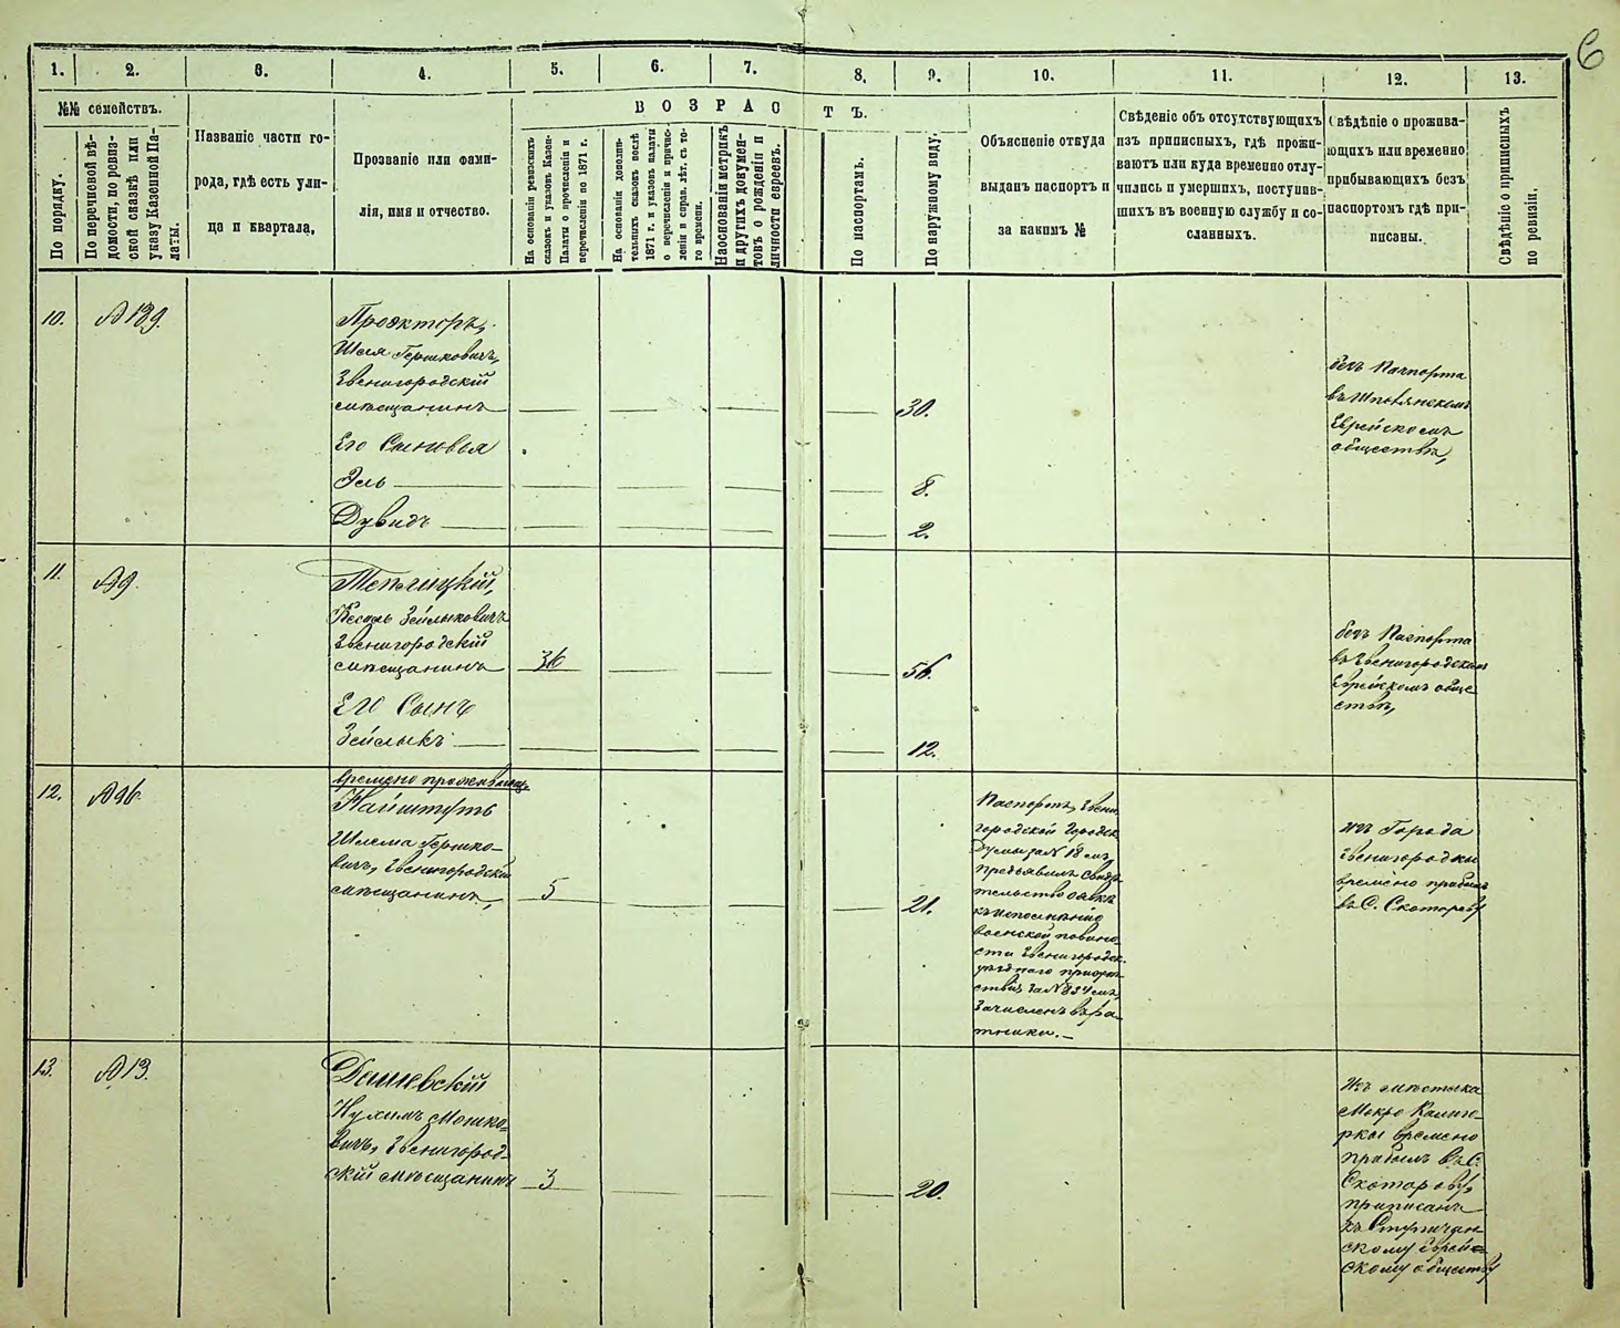 6
1. 2. 3. 4. 5. 6. 7. 8. 9. 10. 11. 12. 13.
№№ семействъ.
По порядку.
По перечневой вѣ-
домости, по ревиз-
ской сказкѣ или
указу Казенной Па-
латы.
Названіе части го-
рода, гдѣ есть ули-
ца и квартала,
Прозваніе или фами-
лія, имя и отчество.
ВОЗРАСТЪ.
На основаніи ревизскихъ
сказокъ и указовъ Казен.
Палаты о причисленіи и
перечисленіи по 1871 г.
На основаніи дополни-
тельныхъ сказокъ послѣ
1871 г. и указовъ палаты
о перечисленіи и причис-
леніи и справ. лѣт. съ то-
го времени.
На основаніи метрикъ
и другихъ докумен-
товъ о рожденіи и
личности евреевъ.
По паспортамъ.
По наружному виду.
Объясненіе откуда
выданъ паспортъ и
за какимъ №
Свѣденіе объ отсутствующихъ
изъ приписныхъ, гдѣ прожи-
ваютъ или куда временно отлу-
чились и умершихъ, поступив-
шихъ въ военную службу и со-
сланныхъ.
Свѣдѣніе о прожива-
ющихъ или временно
прибывающихъ безъ
паспортомъ гдѣ при-
писаны.
Свѣдѣніе о приписныхъ
по ревизіи.
10. №139.
Проэкторъ,
Шая Гершковичъ,
Звенигородскій
мѣщанинъ 30.
Его Сыновья
Эль 8.
Дувидъ 2.
безъ Паспорта
въ Шполянскомъ
Еврейскомъ
обществѣ,
11. №9.
Теплицкій,
Зейлыковичъ
Звенигородскій
мѣщанинъ 36 56.
Его Сынъ
Зейлыкъ 12.
безъ Паспорта
въ Звенигородском
Еврейскомъ обще
ствѣ,
12. №96
времено проживающ.
Найштутъ
Шлема Гершко-
вичъ, Звенигородскій
мѣщанинъ, 5 21.
Паспортъ, Звени
городской Городск
Думы за № 18 мъ,
предъявилъ свидѣ
тельство о явкѣ
къ исполненію
воинской повино
сти Звенигородск.
уѣзднаго присут
ствія за № 834 мъ,
зачисленъ въ ра-
тники.
изъ Города
Звенигородки
времено прибылъ
въ С. Скотареву
13. №13.
Дашевскій
Нухимъ Мошко-
вичъ, Звенигород-
скій мѣщанинъ 3 20.
Изъ мѣстечка
Мокро Калиго-
рки времено
прибылъ въ С.
Скотарову,
приписанъ
къ
скому еврей-
скому обществу